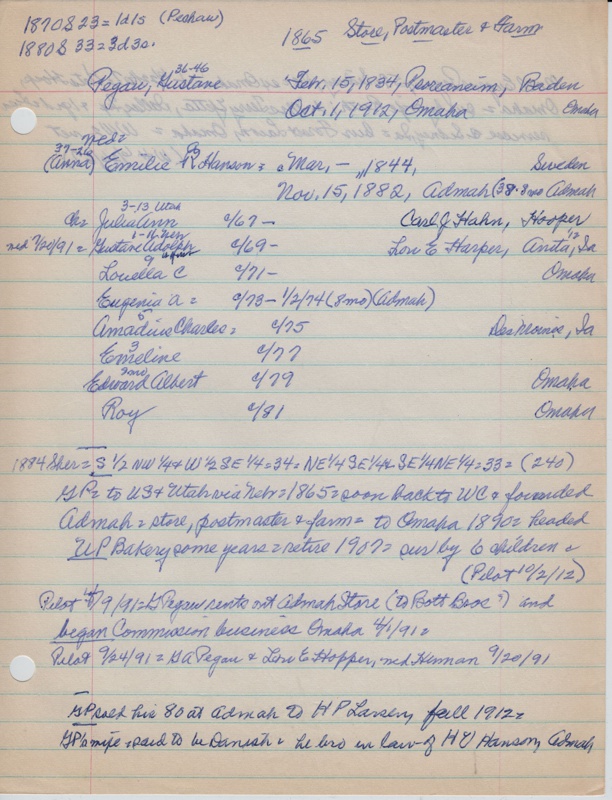 1870S 23 = 1d1s (Peshaw)
1880S 33 = 3d3s.
1865 Store, Postmaster & Farm
36-46
Pegau, Gustave Feb. 15, 1834, Baden
Oct. 1, 1912, Omaha Omaha
med =
37-26
(Anna) Emilie R Hanson = Mar, – 1844, Sweden
Nov. 15, 1882, Admah (38-8mo Admah
3-13 Utah
Ch = Julia Ann c/67 – Carl J Hahn, Hooper
1-11 Neb
med 9/20/91 = Gustave Adolph c/69 – Lori E Harper, Anita, Ia
9
Louella C c/71 – Omaha
Eugenia A = c/73 – 1/2/74 (8mo) (Admah)
5
Amadius Charles = c/75 Des Moines, Ia
3
Emeline c/77
9mo
Edward Albert c/79 Omaha
Roy c/81 Omaha
1884 Sher = S 1/2 NW 1/4 & W 1/2 SE 1/4 = 34 = NE 1/4 SE 1/4 & SE 1/4 NE 1/4 = 33 = (240)
GP = to US & Utah via Nebr = 1865 = soon back to WC & founded
Admah = store, postmaster & farm = to Omaha 1890 = headed
UP Bakery some years = retire 1907 = sur by 6 children =
(Pilot 10/2/12)
Pilot 4/9/91 = G Pegau rents out Admah Store (to Bott Bros ?) and
began Commission business Omaha 4/1/91 =
Pilot 9/24/91 = G A Pegau & Lori E Hopper, med Herman 9/20/91
GP sold his 80 at Admah to H P Larsen, fall 1912 =
GP's wife = said to be Danish = he bro in law of H V Hanson, Admah